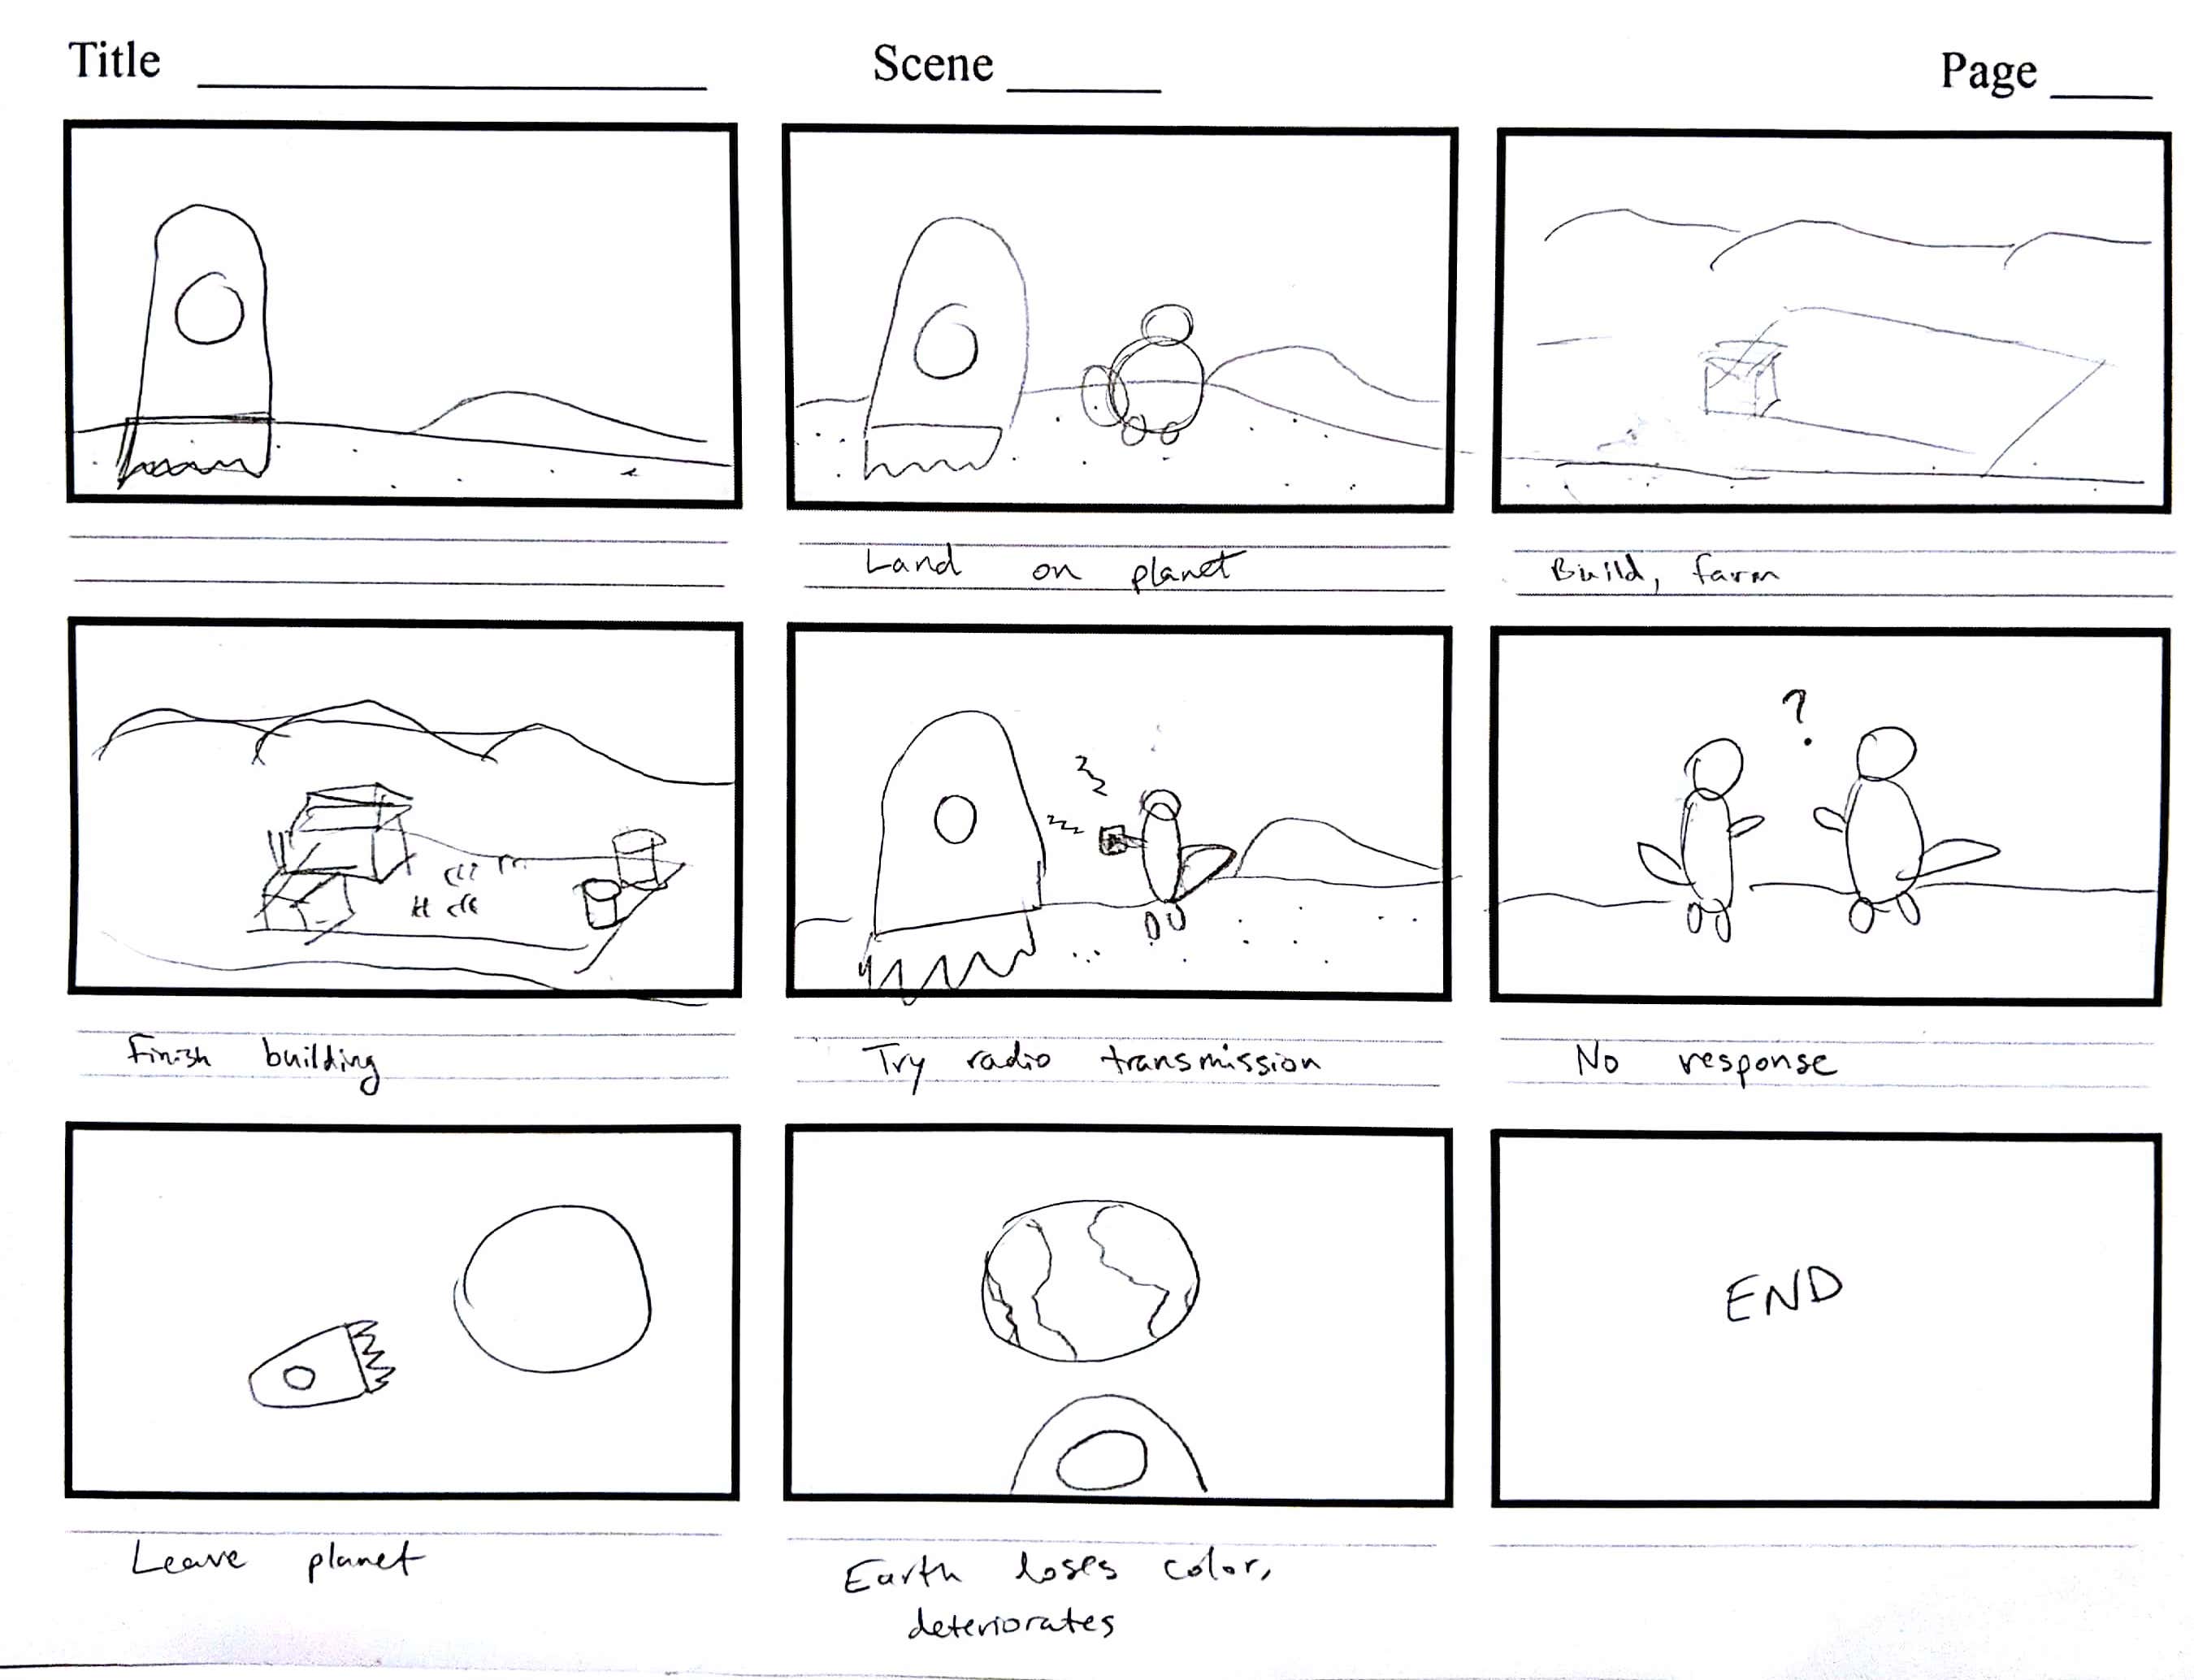 Title
Scene
Page
Land on planet
Build, farm
Finish building
Try radio transmission
?
No response
END
Leave planet
Earth loses color,
deteriorates